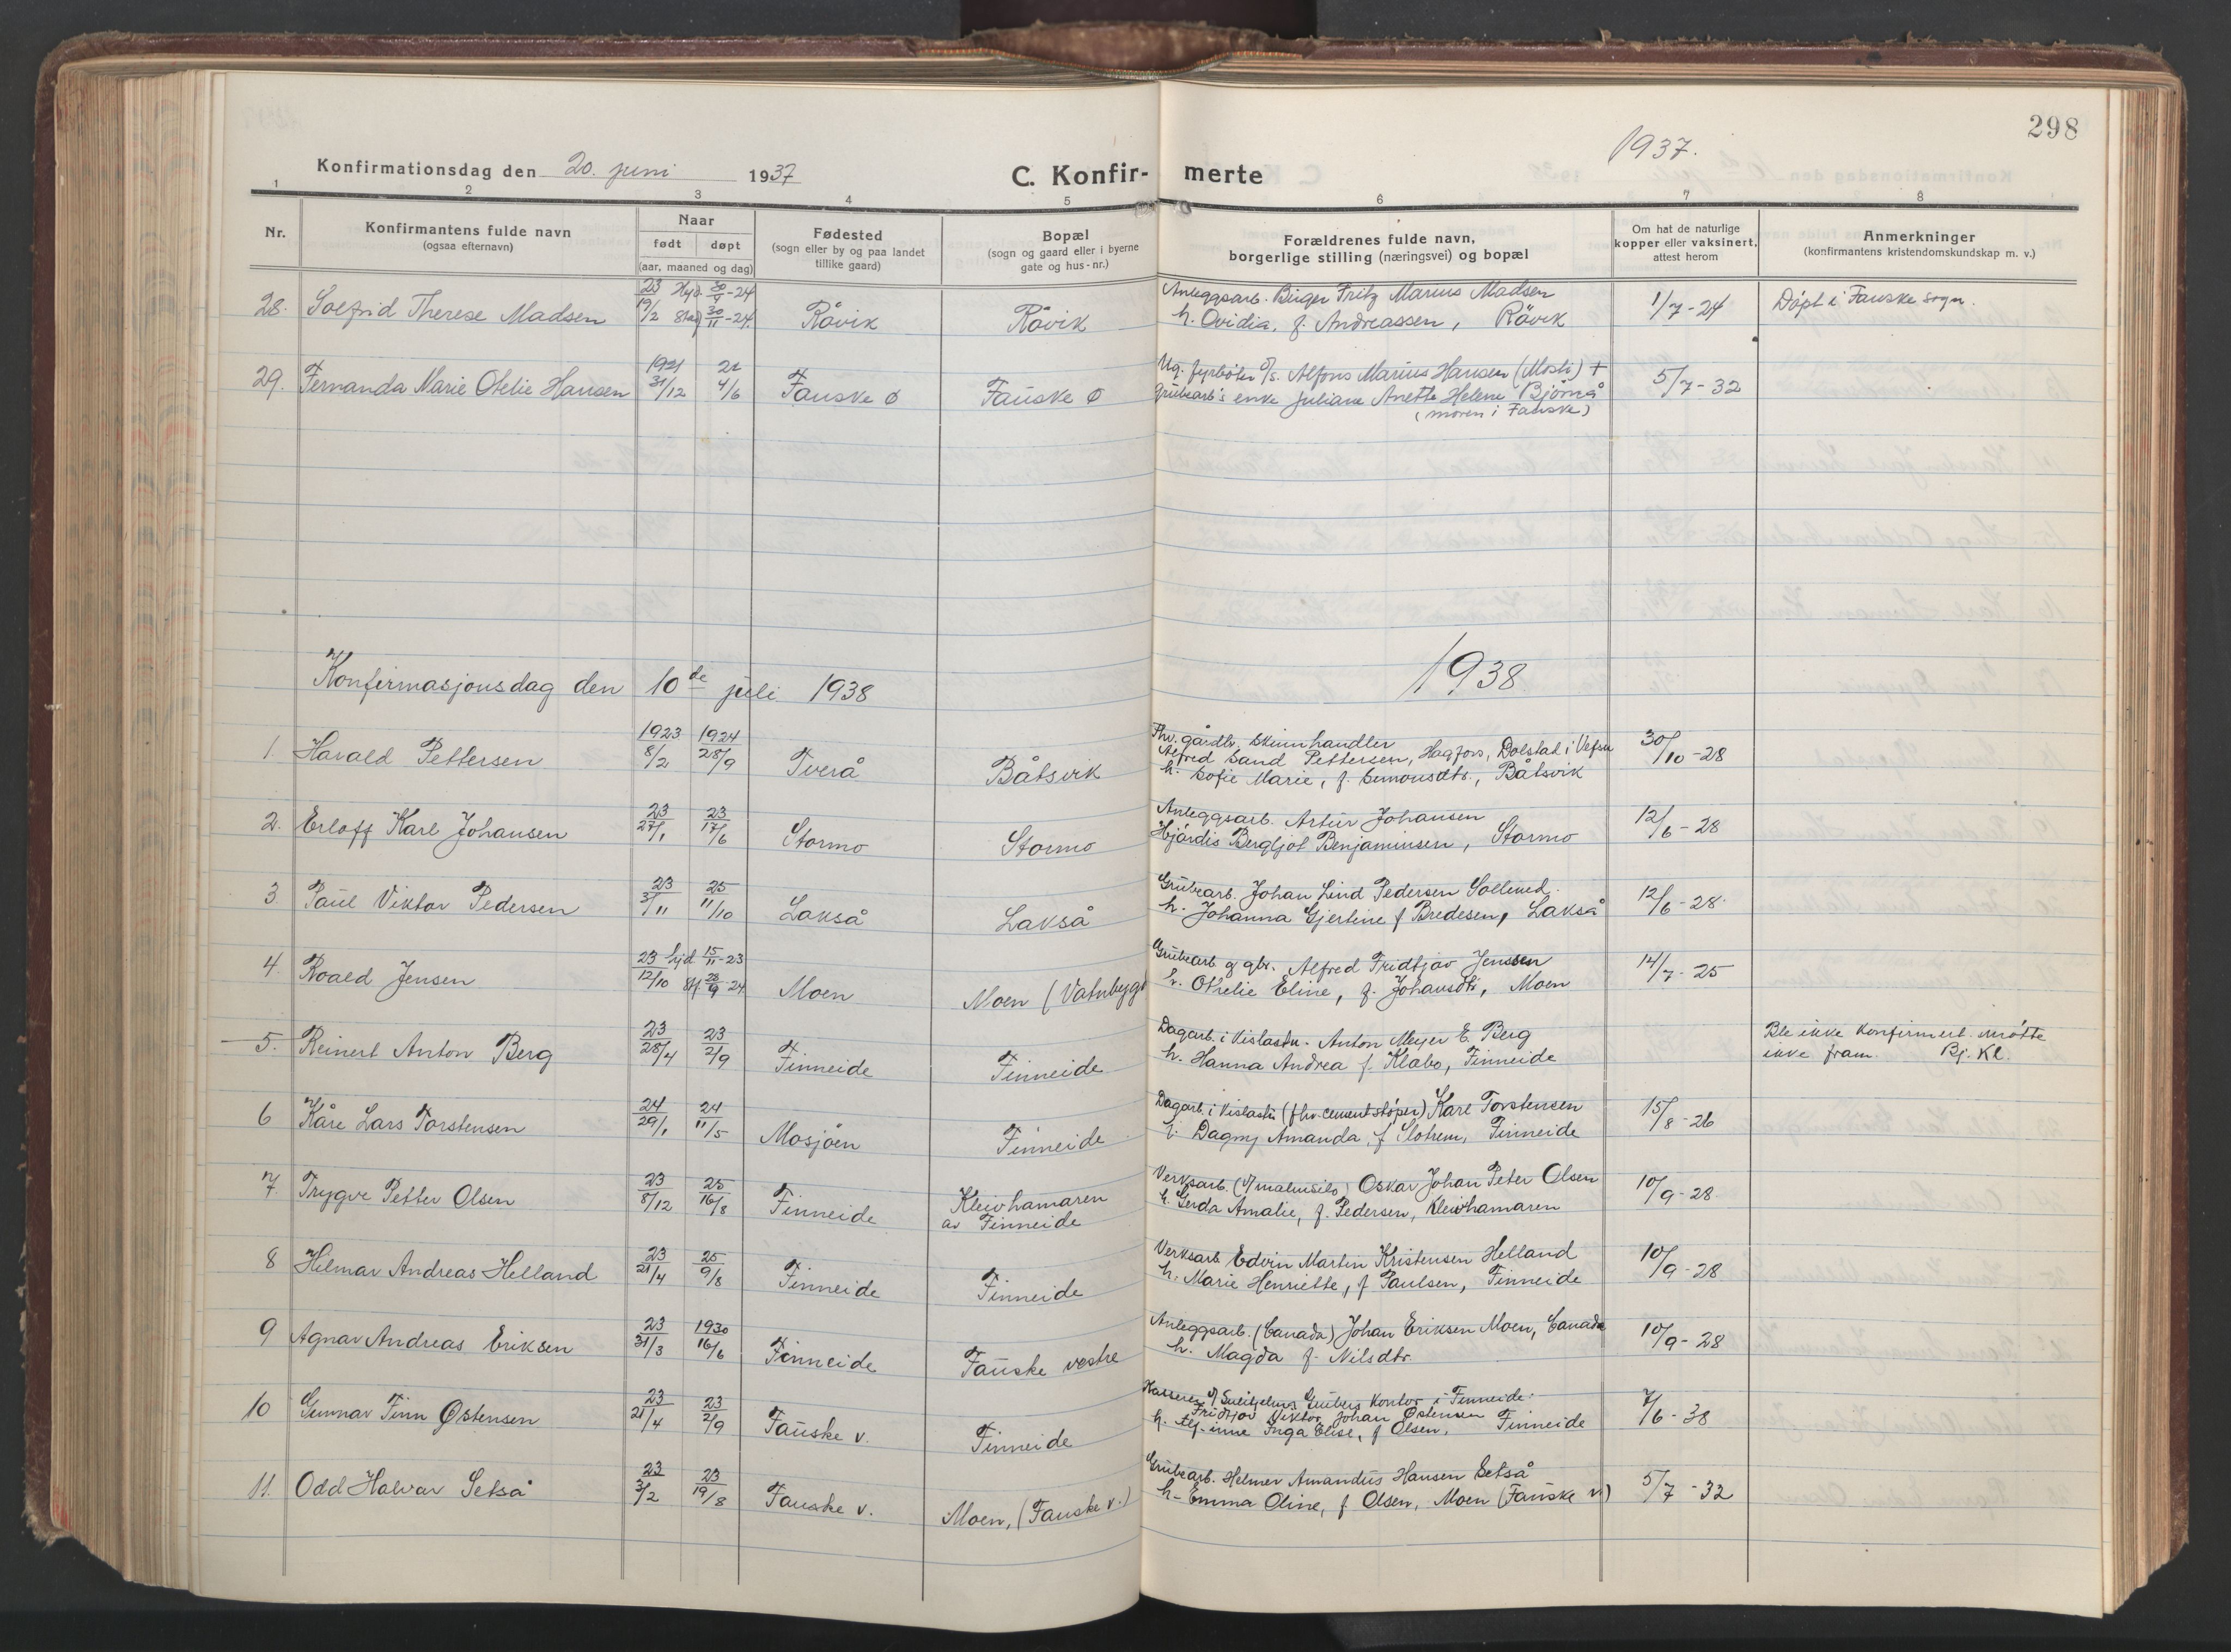 298
1937.
Konfirmationsdag den 20. juni 1937
C. Konfir- merte
1 2 3 4 5 6 7 8
Nr.
Konfirmantens fulde navn
(ogsaa efternavn)
Naar
født døpt
(aar, maaned og dag)
Fødested
(sogn eller by og paa landet
tillike gaard)
Bopæl
(sogn og gaard eller i byerne
gate og hus-nr.)
Forældrenes fulde navn,
borgerlige stilling (næringsvei) og bopæl
Om hat de naturlige
kopper eller vaksinert,
attest herom
Anmerkninger
(konfirmantens kristendomskundskap m. v.)
23 Hjd. 30/9-24 Anleggsarb. Birger Fritz Marius Madsen
28. Solfrid Therese Madsen 19/2 Stad 30/11-24 Råvik Råvik h. Ovidia, f. Andreassen, Råvik 1/7-24 Döpt i Fauske sogn.
1921 22 Ug. fyrböter s/s. Alfons Marius Hansen (Mosti) +
29. Fernanda Marie Otelie Hansen 31/12 4/6 Fauske Ø Fauske Ø Grubearb's enke Juliane Anette Helene Björnå 5/7-32
(moren i Fauske)
Konfirmasjonsdag den 10de juli 1938
1938
1923 1924 Fhv. gårdbr. skinnhandler
1. Harald Pettersen 8/2 28/9 Tverå Båtsvik Alfred Sand Pettersen, Hagfors, Dolstad i Vefsn 30/10-28
h. Sofie Marie, f. Simonsdtr., Båtsvik
23 23 Anleggsarb. Artur Johansen
2. Erloff Karl Johansen 27/1 17/6 Stormo Stormo Hjördis Bergljot Benjaminsen, Stormo 12/6-28
23 25 Grubearb. Johan Lind Pedersen Sollund.
3. Paul Viktor Pedersen 3/11 11/10 Lakså Lakså h. Johanna Gjertine f Bredesen, Lakså 12/6-28.
23 hjd 15/11-23 Grubearb. g gbr. Alfred Fridtjov Jenssen
4. Roald Jensen 12/10 st 28/9-24 Moen Moen (Vatnbygd h. Othelie Eline, f. Johansdtr, Moen 14/7-25
23 23 Dagarb. i Kislastn. Anton Meyer E. Berg Ble ikke konfirmert. Mötte
5. Reinert Anton Berg 28/4 2/9 Finneide Finneide h. Hanna Andrea f. Klabo, Finneide ikke fram. Bj. Kl.
24 24 Dagarb. i Kislastn (fhv. cementstöper) Karl Torstensen
6 Kåre Lars Torstensen 29/1 11/5 Mosjöen Finneide h. Dagny Amanda, f Slotrem, Finneide 15/8-26
23 25 Verksarb. (v/malmsilo) Oskar Johan Peter Olsen
7. Trygve Petter Olsen 8/12 16/8 Finneide Kleivhamaren h. Gerda Amalie, f. Pedersen, Kleivhamaren 10/9-28
av Finneide
23 25 Verksarb Edvin Martin Kristensen Helland
8 Hilmar Andreas Helland 21/4 9/8 Finneide Finneide h. Marie Henriette, f Paulsen, Finneide 10/9-28
23 1930 Anleggsarb. (Canada) Johan Eriksen Moen, Canada
9 Agnar Andreas Eriksen 31/3 16/6 Finneide Fauske vestre h. Magda f. Nilsdtr. 10/9-28
23 23 Kasserer v/ Sulitjelma Grubers kontor i Finneide.
10 Gunnar Finn Östensen 21/4 2/9 Fauske v. Finneide Fridtjov Viktor Johan Östensen 7/6-38
h. Inga Elise, f Olsen, Finneide
23 23 Grubearb. Helmer Amandus Hansen Setså
11. Odd Halvar Setså 3/2 19/8 Fauske v. Moen, (Fauske v.) h- Emma Oline, f Olsen, Moen (Fauske v.) 5/7-32